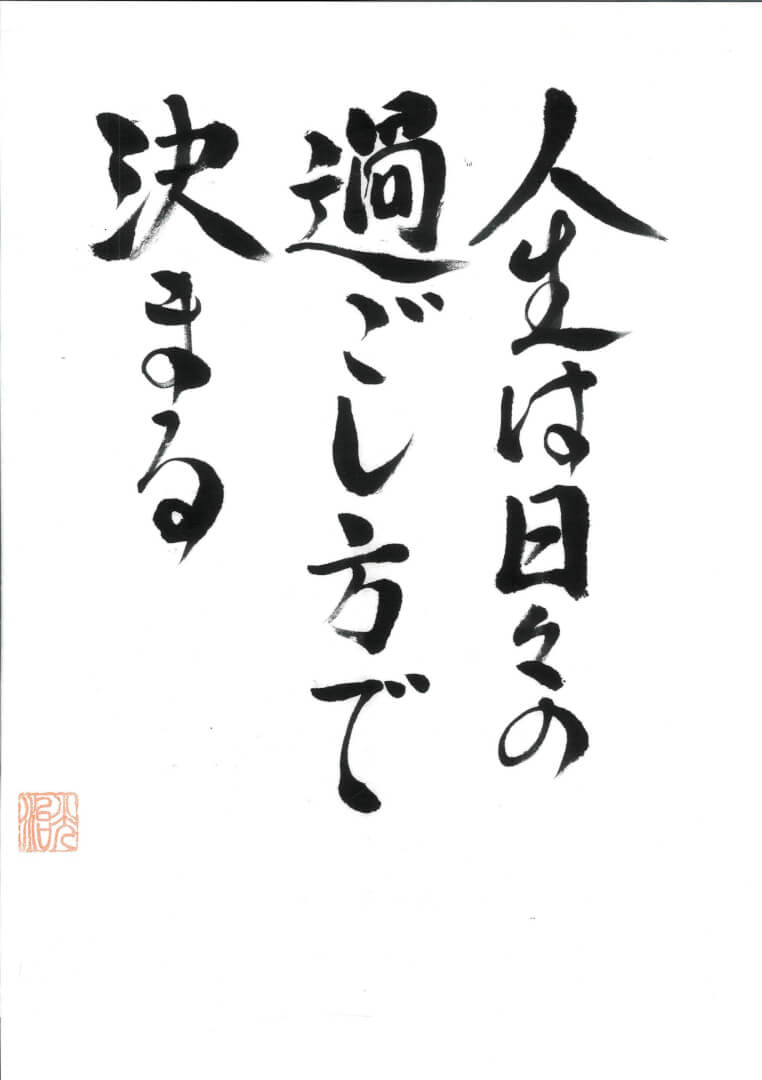 人生は日々の
過ごし方で
決まる